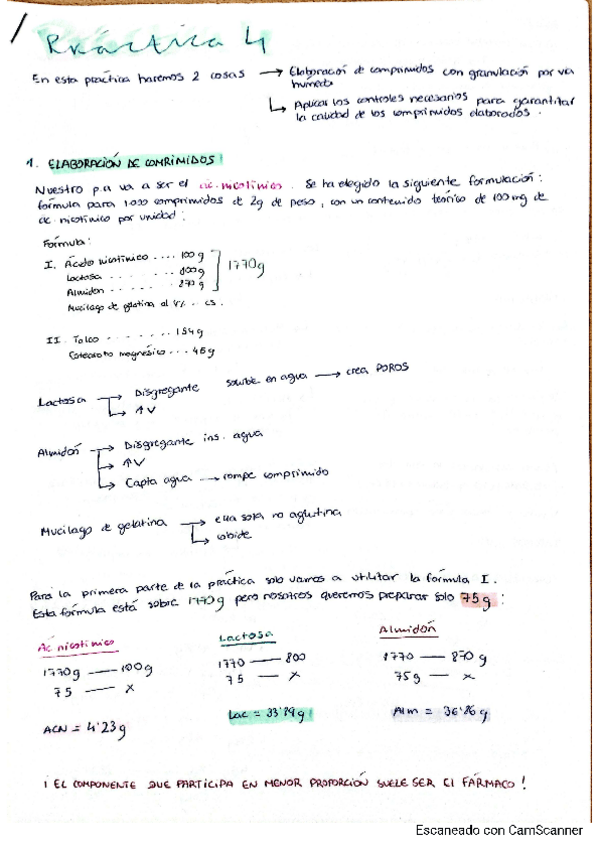 Práctica 4
En esta práctica haremos 2 cosas → Elaboración de comprimidos con granulación por vía
húmeda
↳ Aplicar los controles necesarios para garantizar
la calidad de los comprimidos elaborados.
1. ELABORACIÓN DE COMRIMIDOS!
Nuestro p.a va a ser el ác. nicotínico. Se ha elegido la siguiente formulación:
fórmula para 1.000 comprimidos de 2g de peso, con un contenido teórico de 100 mg de
ác. nicotínico por unidad:
Fórmula:
I. Ácido nicotínico .... 100 g
Lactosa . . . . . . . 800g
Almidón . . . . . . 870 g
1770g
Mucílago de gelatina al 4% .. cs.
II. Talco . . . . . . . 154 g
Estearato magnésico ... 46 g
Lactosa → Disgregante soluble en agua → crea POROS
↳ ↑V
Almidón → Disgregante ins. agua
→ ↑V
↳ Capta agua → rompe comprimido
Mucílago de gelatina → ella sola no aglutina
Para la primera parte de la práctica solo vamos a utilizar la fórmula I.
Esta fórmula está sobre 1770g pero nosotros queremos preparar solo 75g:
Ác nicotínico
1770g — 100g
75 — x
ACN = 4'23g
Lactosa
1770 — 800
75 — x
Lac = 33'89g
Almidón
1770 — 870 g
75g — x
Alm = 36'86g
¡ EL COMPONENTE QUE PARTICIPA EN MENOR PROPORCIÓN SUELE SER El FÁRMACO !
Escaneado con CamScanner